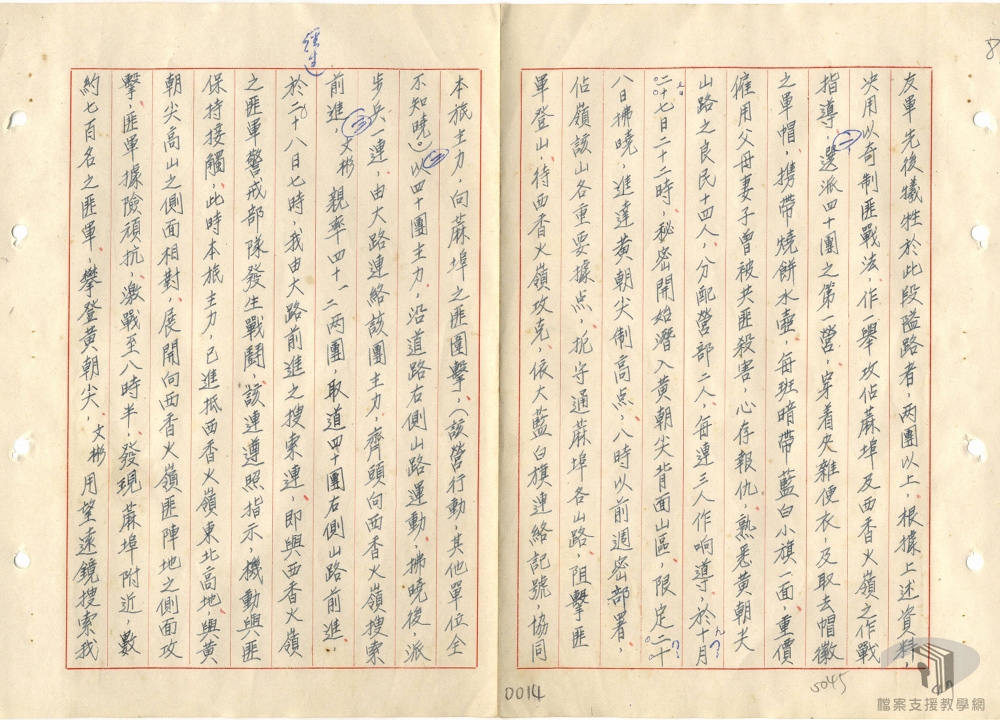 友軍先後犧牲於此段隘路者，兩團以上，根據上述資料，
決用以奇制匪戰法，作一舉攻佔蔴埠及西香火嶺之作戰
指導，選派四十團之第一營，穿着夾雜便衣，及取去帽徽
之軍帽，携帶燒餅水壺，每班暗帶藍白小旗一面，重價
僱用父母妻子曾被共匪殺害，心存報仇，熟悉黃朝尖
山路之良民十四人，分配營部二人，每連三人作响導，於十月
二十七日二十二時，秘密開始潛入黃朝尖背面山區，限定二十
八日拂曉，進達黃朝尖制高点，八時以前週密部署，
佔嶺該山各重要據点，扼守通蔴埠各山路，阻擊匪
軍登山，待西香火嶺攻克，依大藍白旗連絡記號，協同
本旅主力，向蔴埠之匪圍擊，（該營行動，其他單位全
不知曉。）以四十團主力，沿道路右側山路運動，拂曉後，派
步兵一連，由大路連絡該團主力，齊頭向西香火嶺搜索
前進，文彬親率四十一二兩團，取道四十團右側山路前進，
經過
於二十八日七時，我由大路前進之搜索連，即與西香火嶺
之匪軍警戒部隊發生戰鬪，該連遵照指示，機動與匪
保持接觸，此時本旅主力，已進抵西香火嶺東北高地，與黃
朝尖高山之側面相對，展開向西香火嶺匪陣地之側面攻
擊，匪軍據險頑抗，激戰至八時半，發現蔴埠附近，數
約七百名之匪軍，攀登黃朝尖，文彬用望遠鏡搜索我
0014
5045
檔案支援教學網